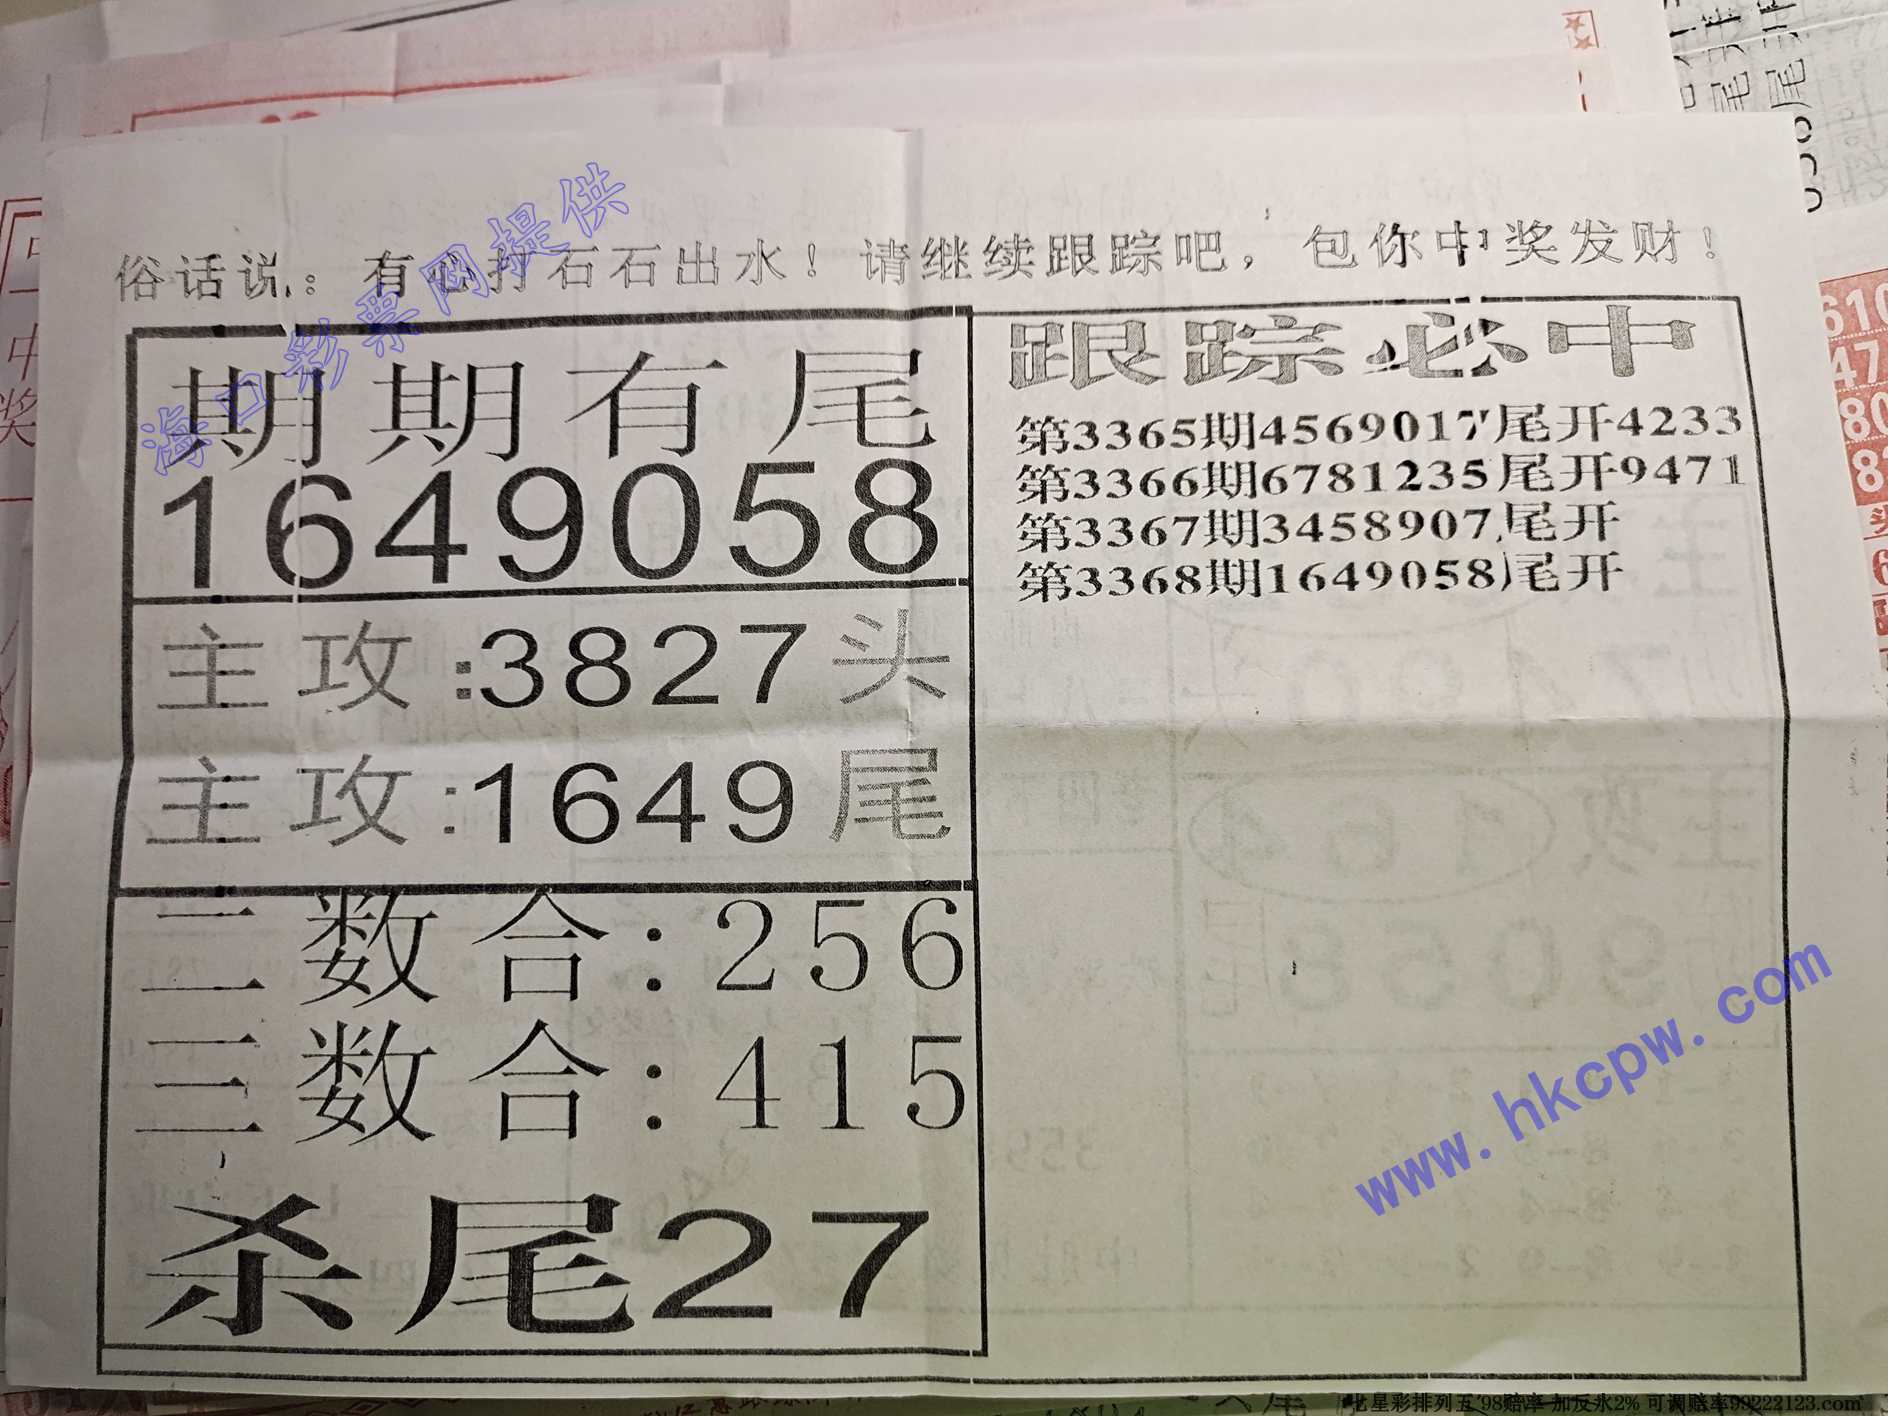 俗话说：有心打石石出水！请继续跟踪吧，包你中奖发财！
期期有尾
1649058
主攻:3827头
主攻:1649尾
二数合:256
三数合:415
杀尾27
跟踪必中
第3365期4569017尾开4233
第3366期6781235尾开9471
第3367期3458907尾开
第3368期1649058尾开
海口彩票网提供
www.hkcpw.com
七星彩排列五'98赔率 加反水2% 可调赔率99222123.com
中
奖
610
47
80